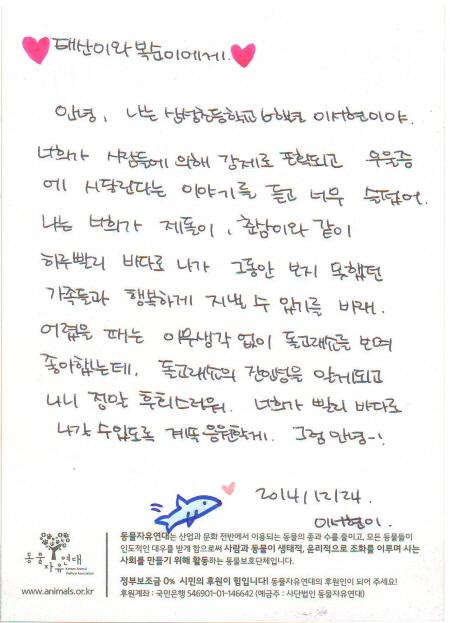 태산이와 복순이에게.
안녕, 나는 삼성초등학교 6학년 이서현이야.
너희가 사람들에 의해 강제로 포획되고 우울증
에 시달린다는 이야기를 듣고 너무 슬펐어.
나는 너희가 제돌이, 춘삼이와 같이
하루빨리 바다로 나가 그동안 보지 못했던
가족들과 행복하게 지낼 수 있기를 바래.
어렸을 때는 아무생각 없이 돌고래쇼를 보며
좋아했는데, 돌고래쇼의 잔인성을 알게되고
나니 정말 후회스러워. 너희가 빨리 바다로
나갈 수있도록 계속 응원할게. 그럼 안녕~!
2014/12/24.
이서현이.
동물자유연대
Korean Animal Welfare Association
www.animals.or.kr
동물자유연대는 산업과 문화 전반에서 이용되는 동물의 종과 수를 줄이고, 모든 동물들이
인도적인 대우를 받게 함으로써 사람과 동물이 생태적, 윤리적으로 조화를 이루며 사는
사회를 만들기 위해 활동하는 동물보호단체입니다.
정부보조금 0% 시민의 후원이 힘입니다! 동물자유연대의 후원인이 되어 주세요!
후원계좌 : 국민은행 546901-01-146642 (예금주 : 사단법인 동물자유연대)